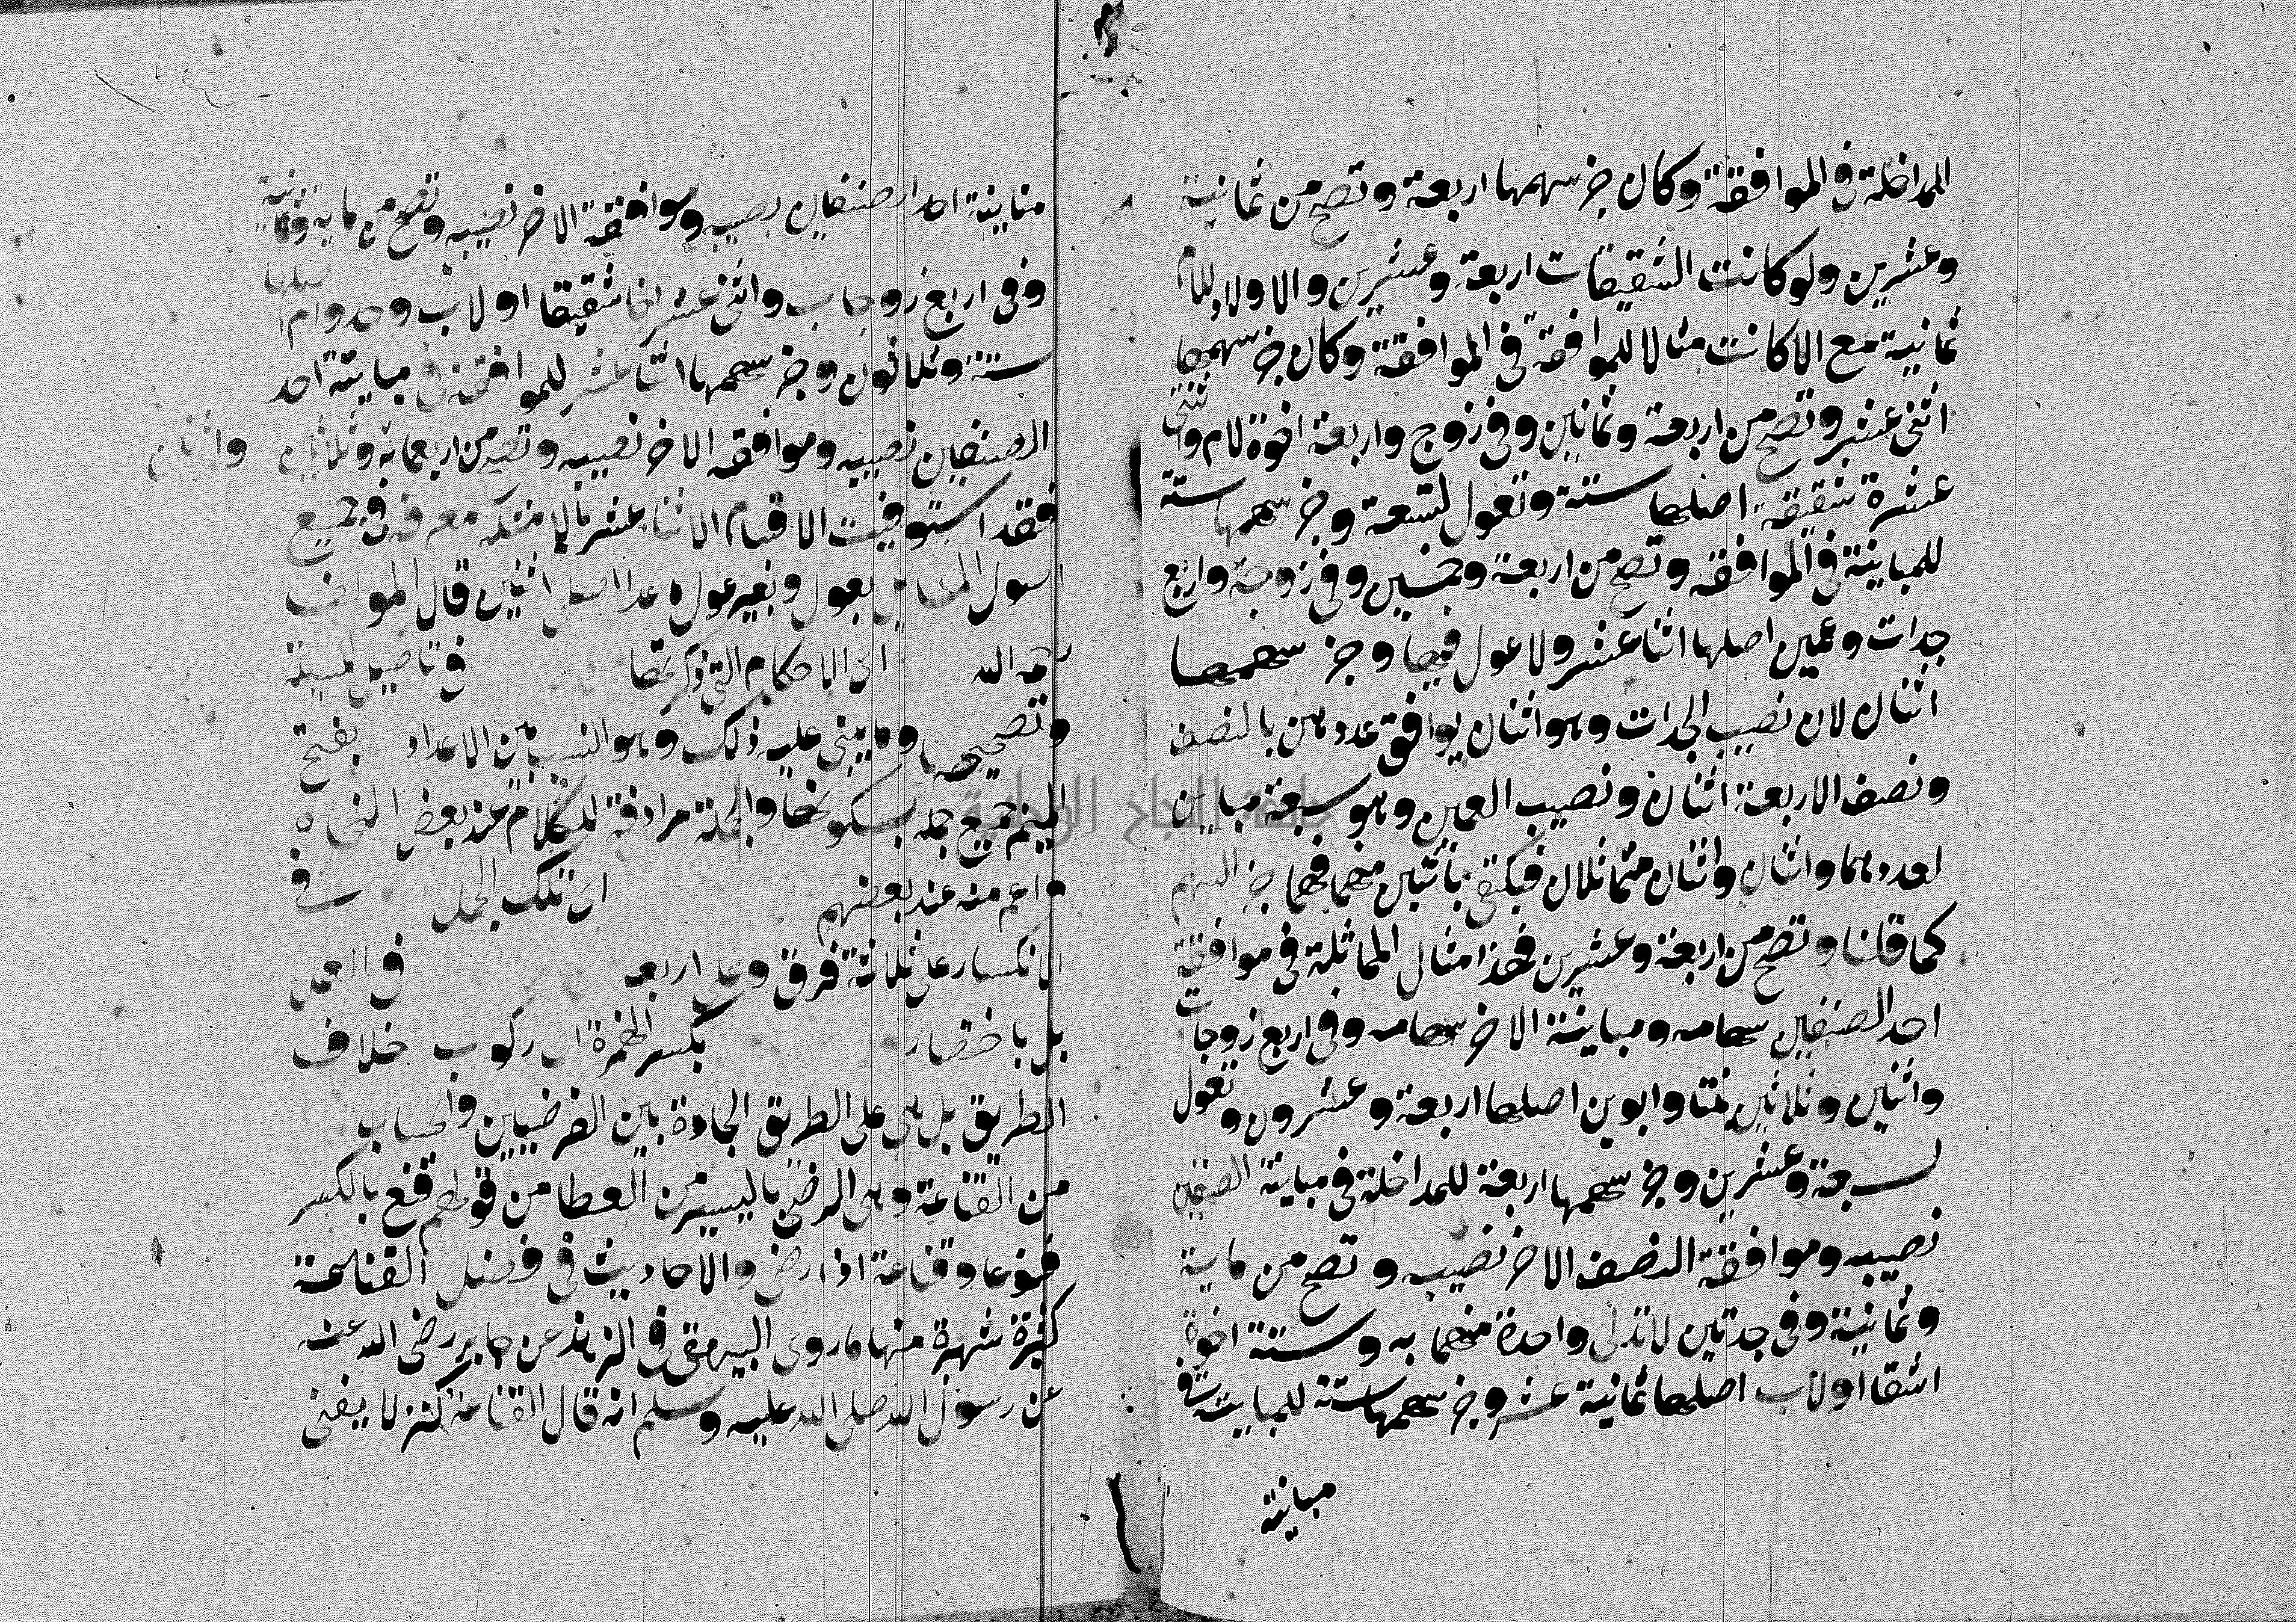 المداخلة فى الموافقة وكان جز سهمها اربعة وتصح من ثمانية
وعشرين ولو كانت الشقيقات اربعة وعشرين والاولاد للام
ثمانية مع الام كانت مثالا للموافقة فى الموافقة وكان جز سهمها
اثنى عشر وتصح من اربعة وثمانين وفى زوج واربعة اخوة لام واثنتى
عشرة شقيقة اصلها ستة وتعول لتسعة وجز سهمها ستة
للمباينة فى الموافقه وتصح من اربعة وخمسين وفى زوجة واربع
جدات وعمين اصلها اثنا عشر ولا عول فيها وجز سهمها
اثنان لان نصيب الجدات وهو اثنان يوافق عددهن بالنصف
ونصف الاربعة اثنان ونصيب العمين وهو سبعة مباين
لعددهما واثنان واثنان متماثلان فيكتفى باثنين منهما فهما جز السهم
كما قلنا وتصح من اربعة وعشرين فهذا مثال المماثلة فى موافقة
احد الصنفين سهامه ومباينة الاخر سهامه وفى اربع زوجات
واثنين وثلاثين بنتا وابوين اصلها اربعة وعشرون وتعول
لسبعة وعشرين وجز سهمها اربعة للمداخلة فى مباينة الصنفين
نصيبه وموافقة النصف الاخر نصيبه وتصح من ماية
وثمانية وفى جدتين لا تدلى واحدة منهما به وستة اخوة
اشقا او لاب اصلها ثمانية عشر وجز سهمها ستة للمباينة فى
مباينة
مباينة احد الصنفين نصيبه وموافقة الاخر نصيبه وتصح من ماية وثمانية
وفى اربع زوجات واثنى عشر اخا شقيقا او لاب وجد وام اصلها
ستة وثلاثون وجز سهمها اثنا عشر للموافقة فى مباينة احد
الصنفين نصيبه وموافقه الاخر نصيبه وتصح من اربعمائة وثلاثين واثنان
فقد استوفيت الاقسام الاثنا عشر بالامثلة مفرقة فى جميع
اصول المسايل بعول وبغير عول ما عدا اصل اثنين قال المولف
رحمه الله اى الاحكام التى ذكرتها فى تاصيل المسيلة
وتصحيحها وما يبنى عليه ذلك وهو النسب بين الاعداد بفتح
الميم جميع جملة بسكونها والجملة مرادفة للكلام عند بعض النحاه
واعم منه عند بعضهم اى تلك الجمل فى
الانكسار على ثلاثة فرق وعلى اربعه فى العمل
بل باختصار بكسر الهمزة اى ركوب خلاف
الطريق بل هى على الطريق الجادة بين الفرضيين والحساب
من القناعة وهى الرضى باليسير من العطا من قولهم قنع بالكسر
قنوعا وقناعة اذا رضى والاحاديث فى فضل القناعة
كثيرة شهيرة منها ما روى البيهقى فى الزهد عن جابر رضى الله عنه
عن رسول الله صلى الله عليه وسلم انه قال القناعة كنز لا يفنى